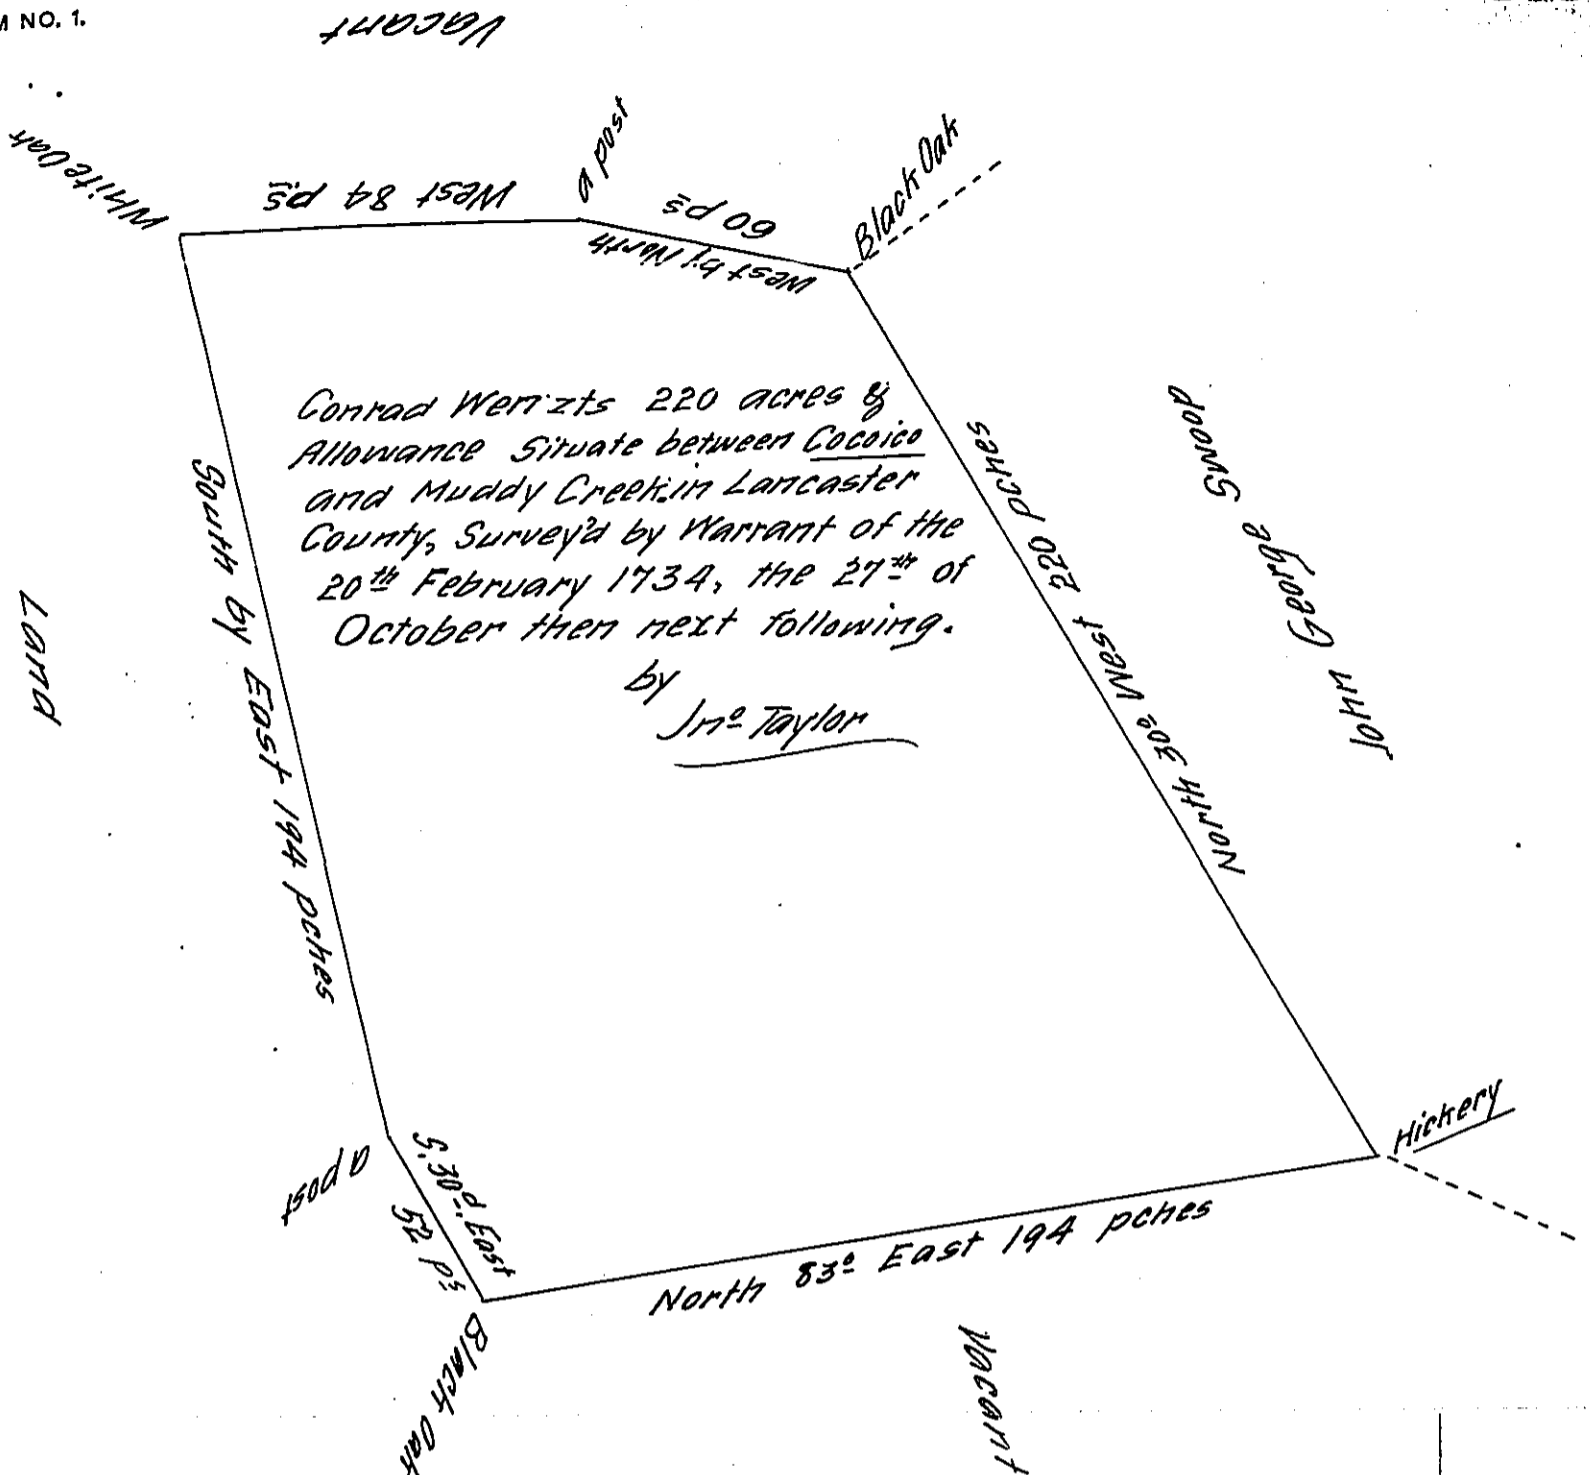 M NO. 1.
Vacant
White Oak
West 84 ps
a post
60 ps
West by North
Black Oak
Conrad Wenzts 220 acres &
Allowance Situate between Cocoico
and Muddy Creek in Lancaster
County, Survey'd by Warrant of the
20th February 1734, the 27th of
October then next following.
by
Jno Taylor
South by East 194 pches
Land
North 30o West 220 pches
John George Swoop
a post
S. 30d East
52 ps
Hickery
North 83o East 194 pches
Black Oak
Vacant